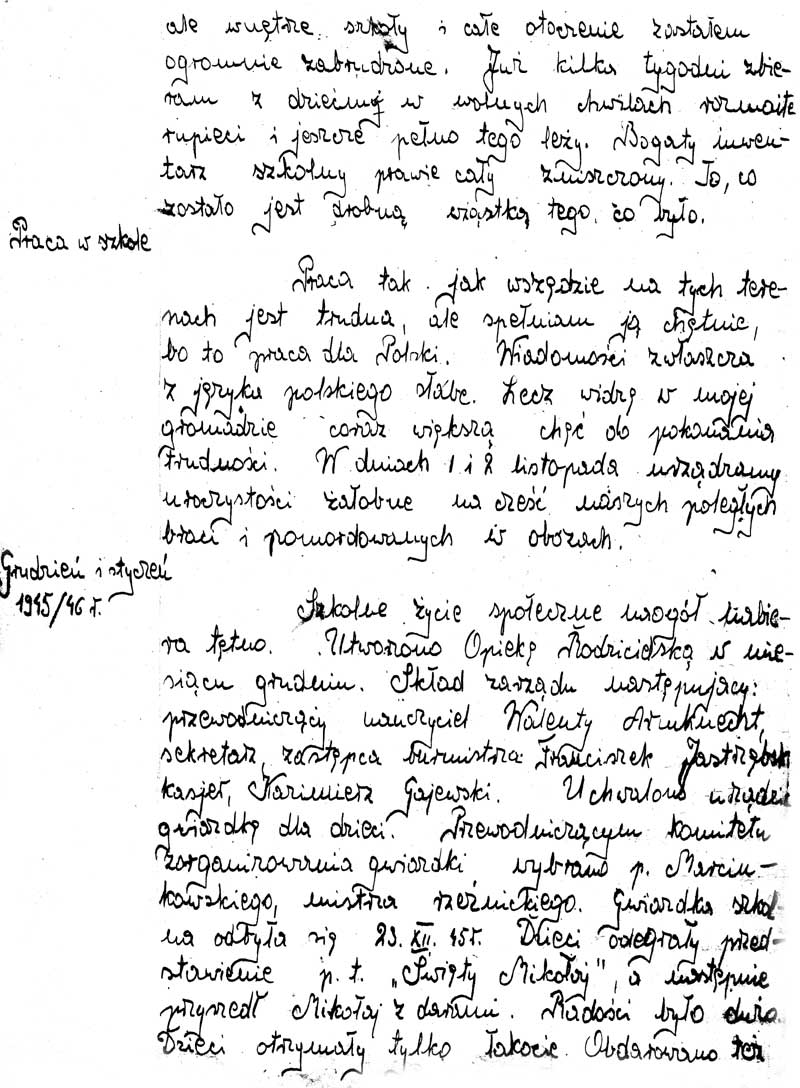 ale wnętrze szkoły i całe otoczenie zastałem
ogromnie zabrudzone. Już kilka tygodni zbie-
ram z dziećmi w wolnych chwilach rozmaite
rupieci i jeszcze pełno tego leży. Bogaty inwen-
tarz szkolny prawie cały zniszczony. To, co
zostało jest drobną cząstką tego, co było.
Praca w szkole
Praca tak jak wszędzie na tych tere-
nach jest trudna, ale spełniam ją chętnie,
bo to praca dla Polski. Wiadomości zwłaszcza
z języka polskiego słabe. Lecz widzę w mojej
gromadzie coraz większą chęć do pokonania
trudności. W dniach 1 i 2 listopada urządzamy
uroczystości żałobne na cześć naszych poległych
braci i pomordowanych w obozach.
Grudzień i styczeń
1945/46 r.
Szkolne życie społeczne naogół nabie-
ra tętno. Utworzono Opiekę Rodzicielską w mie-
siącu grudniu. Skład zarządu następujący:
przewodniczący nauczyciel Walenty Armknecht,
sekretarz, zastępca burmistrza Franciszek
kasjer, Kazimierz Gajewski. Uchwalono urządzić
gwiazdkę dla dzieci. Przewodniczącym komitetu
zorganizowania gwiazdki wybrano p. Marcin-
kowskiego, mistrza rzeźnickiego. Gwiazdka szkol-
na odbyła się 23. XII. 45r. Dzieci odegrały przed-
stawienie p. t. „Święty Mikołaj”, a następnie
przyszedł Mikołaj z darami. Radości było dużo.
Dzieci otrzymały tylko łakocie. Obdarowano też